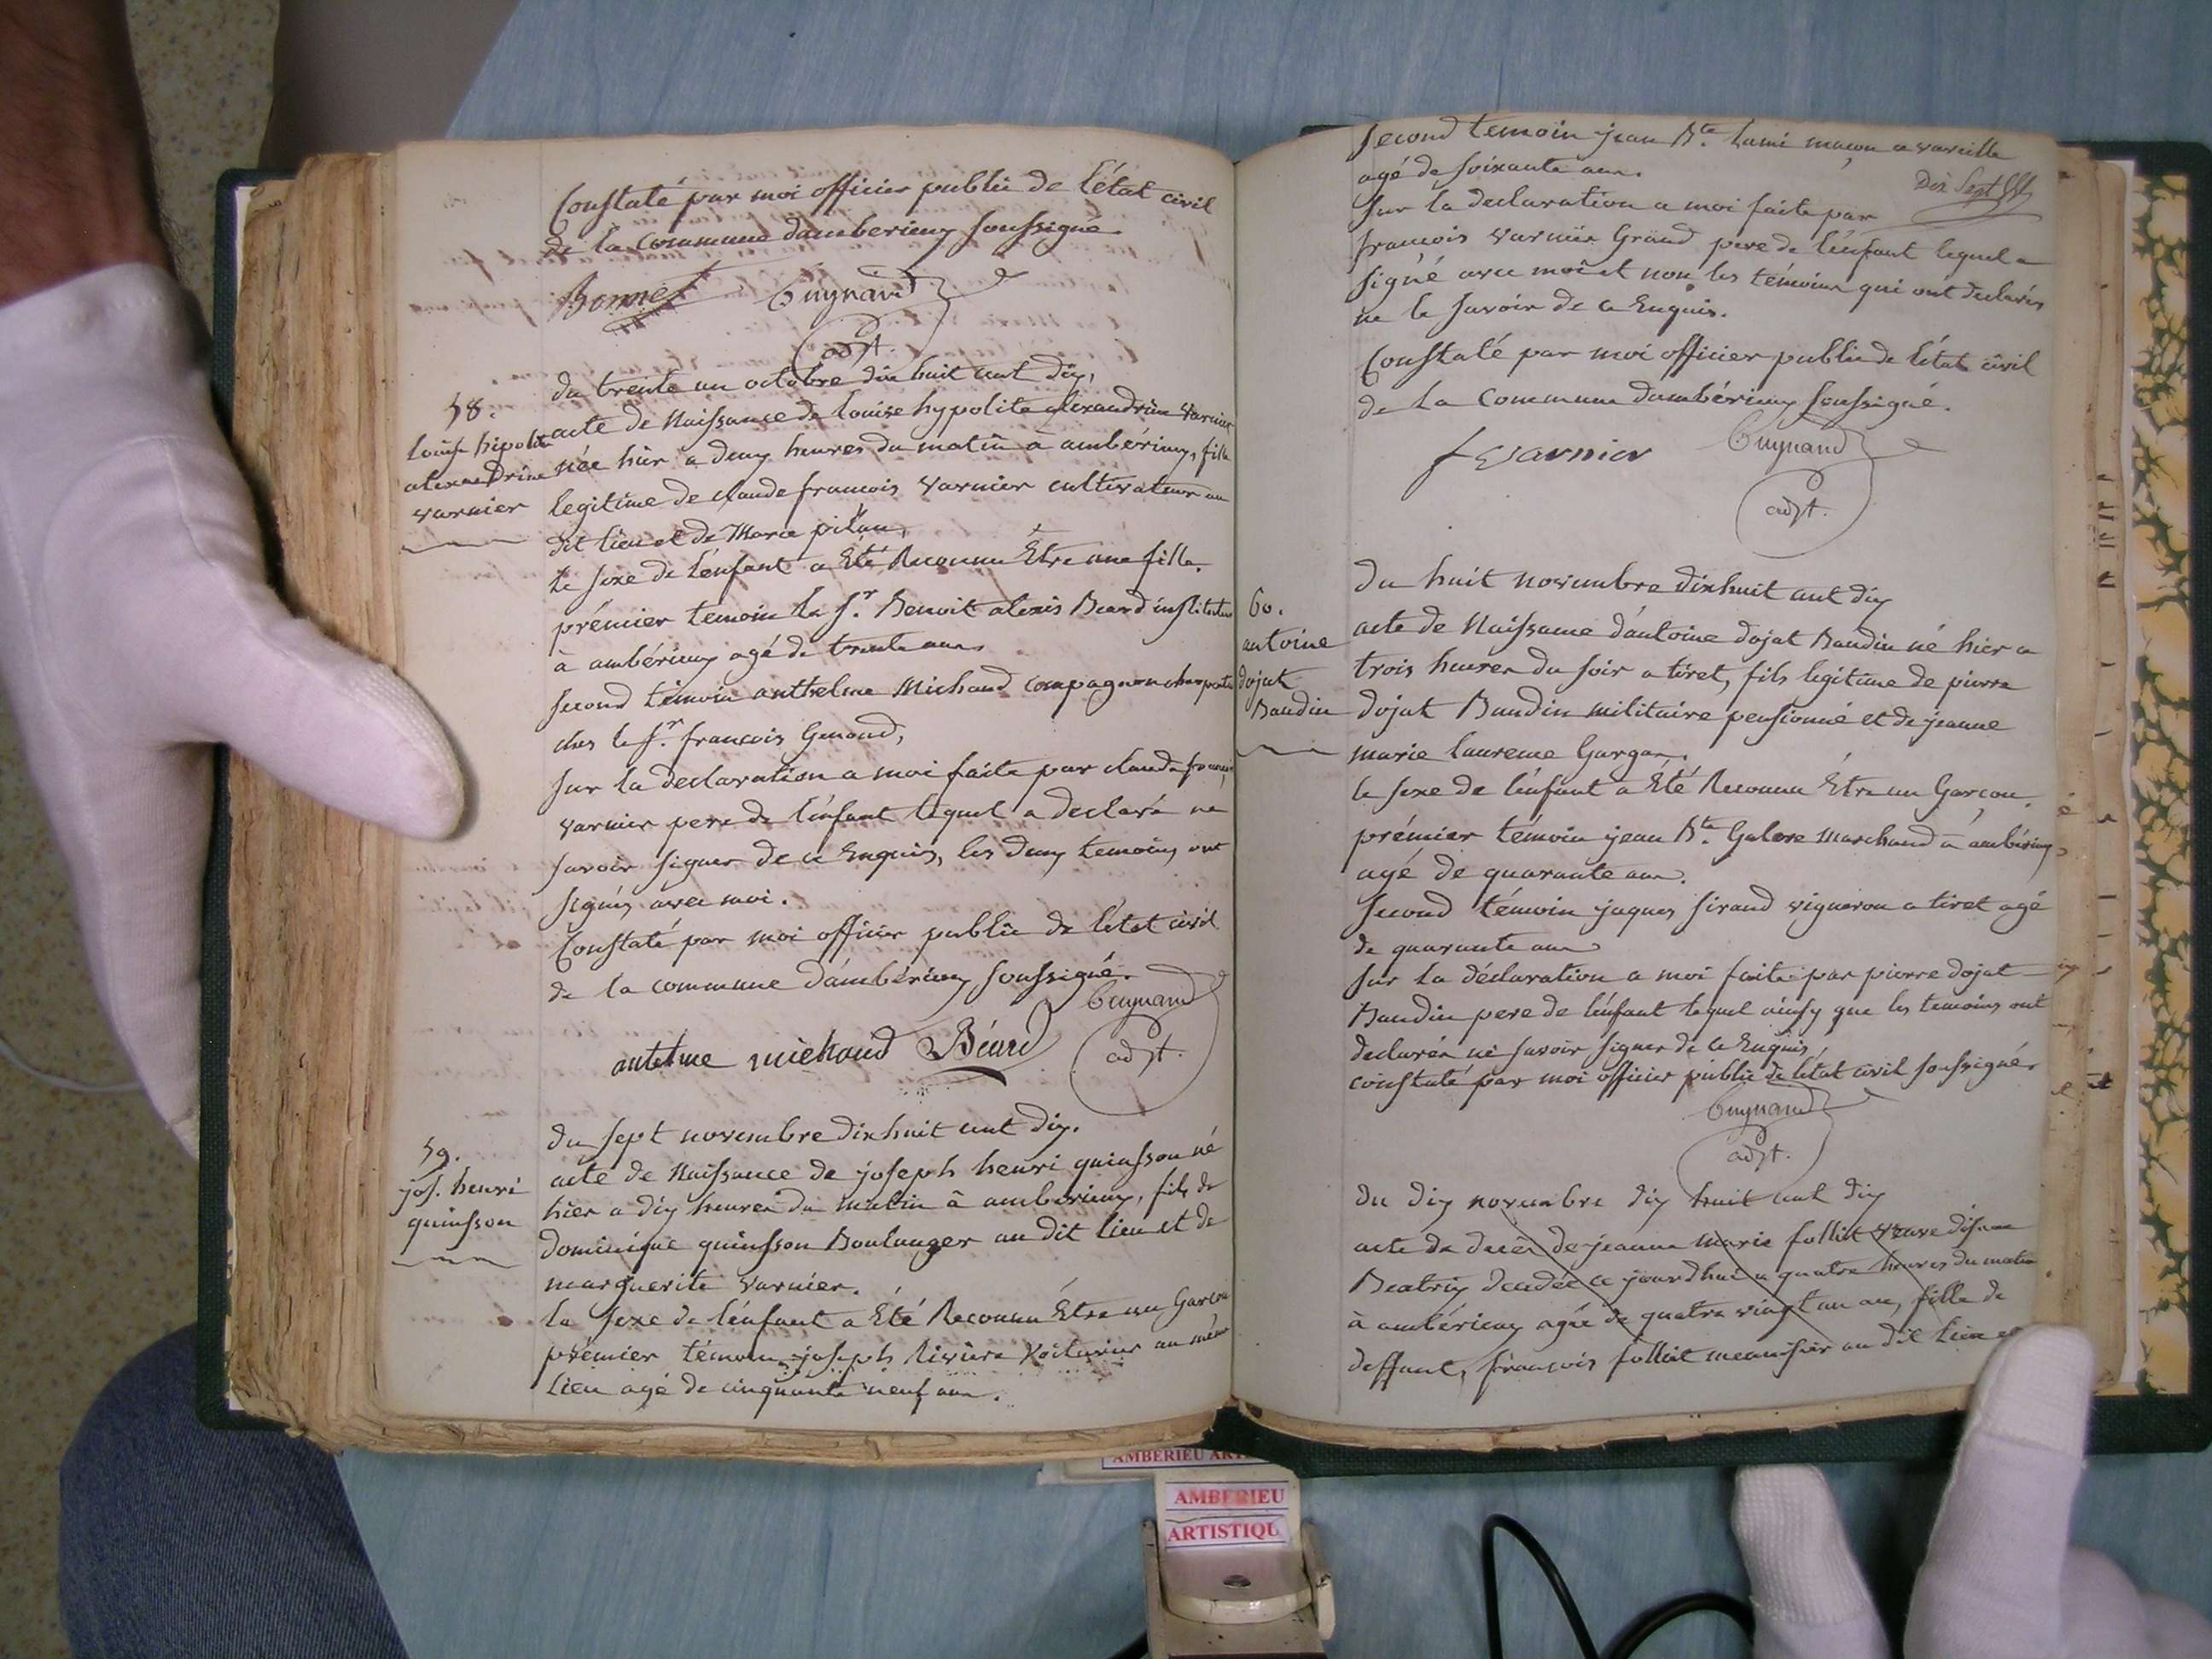 Constaté par moi officier public de l'état civil
de la commune damberieux soussigné.
Bonnet Guynard
adjt.
du trente un octobre dix huit cent dix,
58.
louise hipolite
alexandrine
varnier
acte de Naissance de louise hypolite alexandrine varnier
née hier a deux heures du matin à ambérieux, fille
legitime de claude francois varnier cultivateur au
dit lieu et de Marie
le sexe de l'enfant a Eté Reconnu Être une fille.
prémier temoin le Sr. Benoit alexis Beard instituteur
à ambérieux agé de trente ans
second témoin anthelme Michaud compagnon charpentier
ches le Sr. francois Genoud,
Sur la declaration a moi faite par claude francois
varnier pere de l'énfant lequel a declaré ne
savoir signer de ce Enquis, les deux temoins ont
signés avec moi.
Constaté par moi officier public de l'état civil
de la commune d'ambérieux soussigné.
Guynard
adjt.
antelme michaud Béard
du sept novembre dixhuit cent dix.
59.
jos. henri
quinsson
acte de Naissance de joseph henri quinsson né
hier a dix heures du matin à amberieux, fils de
dominique quinsson Boulanger au dit lieu et de
marguerite varnier.
le sexe de l'énfant a Eté Reconnu Être un Garcon
prémier témoin joseph Riviere voiturier au même
lieu agé de cinquante neuf ans.
second temoin jean Bte. Lami maçon a vareille
agé de soixante ans.
Dix Sept
Sur la declaration a moi faite par
francois varnier Grand pere de l'énfant lequel a
signé avec moi et non les témoins qui ont declarés
ne le savoir de ce Enquis.
Constaté par moi officier public de l'état civil
de la Commune dambérieux soussigné.
f varnier Guynard
adjt.
du huit novembre dixhuit cent dix
60.
antoine
dojat
Baudin
acte de Naissance d'antoine dojat Baudin né hier a
trois heures du soir a tiret, fils legitime de pierre
dojat Baudin militaire pensionné et de jeanne
marie laurence Gargan.
le sexe de l'énfant a Eté Reconnu Être un Garcon.
prémier témoin jean Bte. Galore marchand à ambérieux
agé de quarante ans.
second témoin jaques sirand vigneron a tiret agé
de quarante ans
Sur la déclaration a moi faite par pierre dojat
Baudin pere de l'énfant lequel ainsy que les temoins ont
declarés ne savoir signer de ce Enquis,
constaté par moi officier public de l'état civil soussigné.
Guynard
adjt.
du dix novembre dix huit cent dix
acte de decès de jeanne marie folliet veuve
Beatrix decedée ce jourdhui a quatre heures du matin
à ambérieux agée de quatre vingt un an, fille de
deffunt, francois folliet menuisier au dit lieu et
AMBERIEU
AMBERIEU
ARTISTIQU